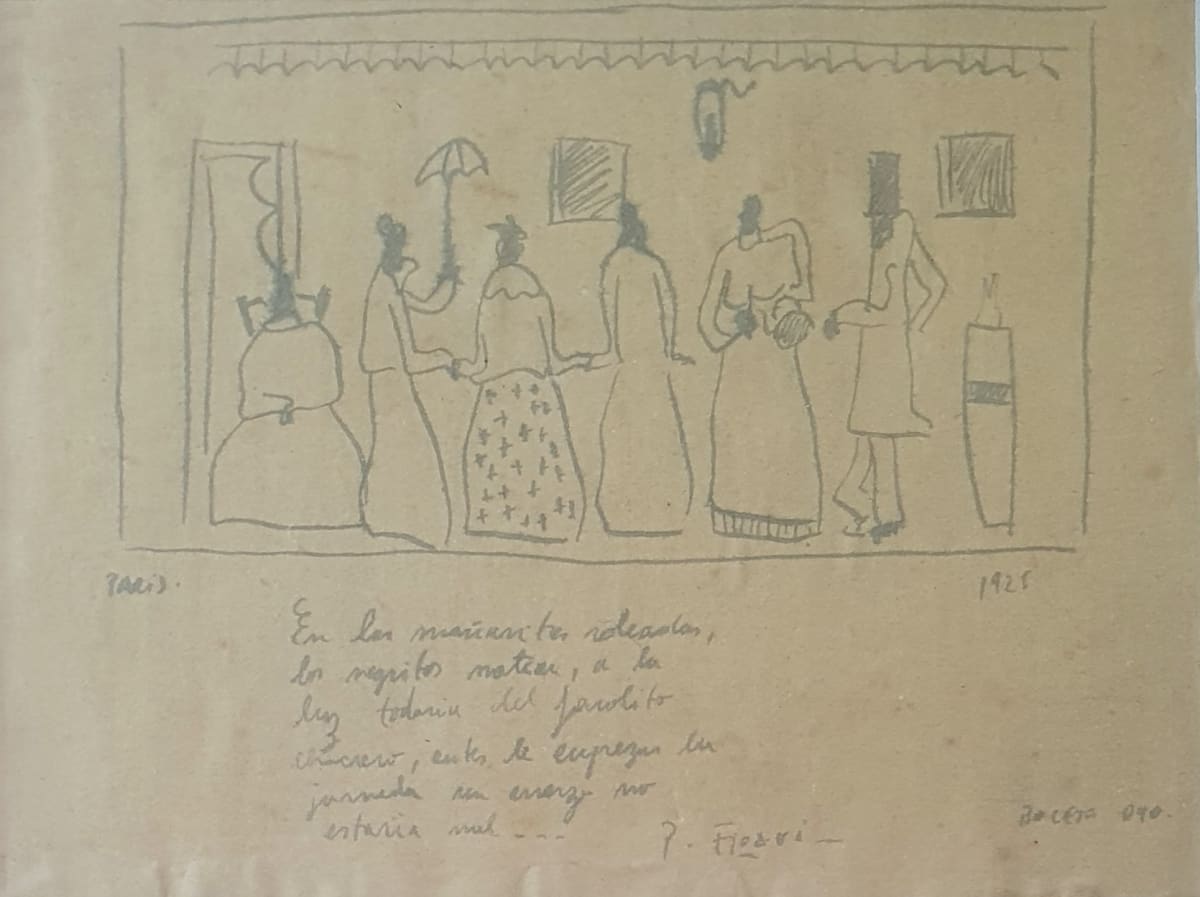 PARIS.
1925
En las mañanitas rosadas,
los negritos matean, a la
luz todavia del farolito
antes de empezar la
jornada un no
estaria mal - - -
P. Figari -
BOCETO